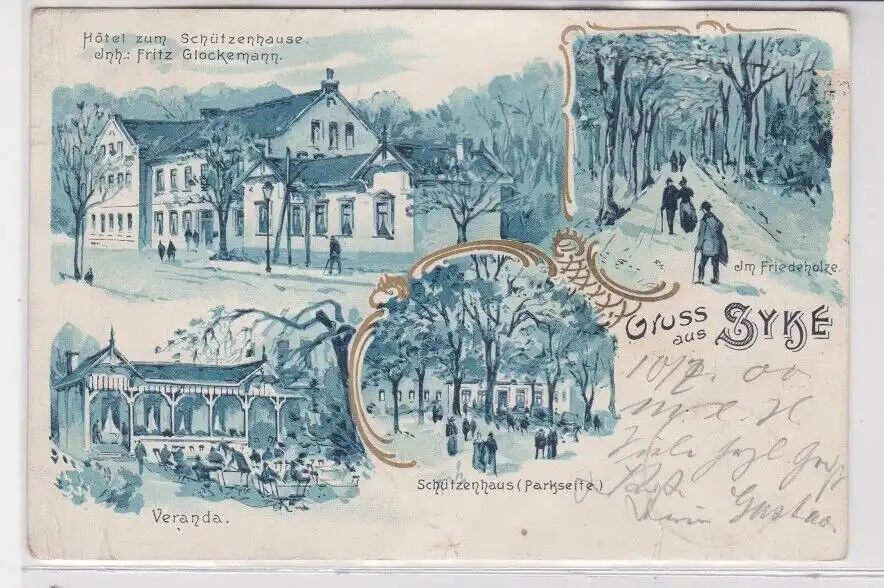 Hôtel zum Schützenhause.
Inh.: Fritz Glockemann.
Im Friedeholze.
Gruss aus SYKE
Veranda.
Schützenhaus (Parkseite.)
Viele
Gustav